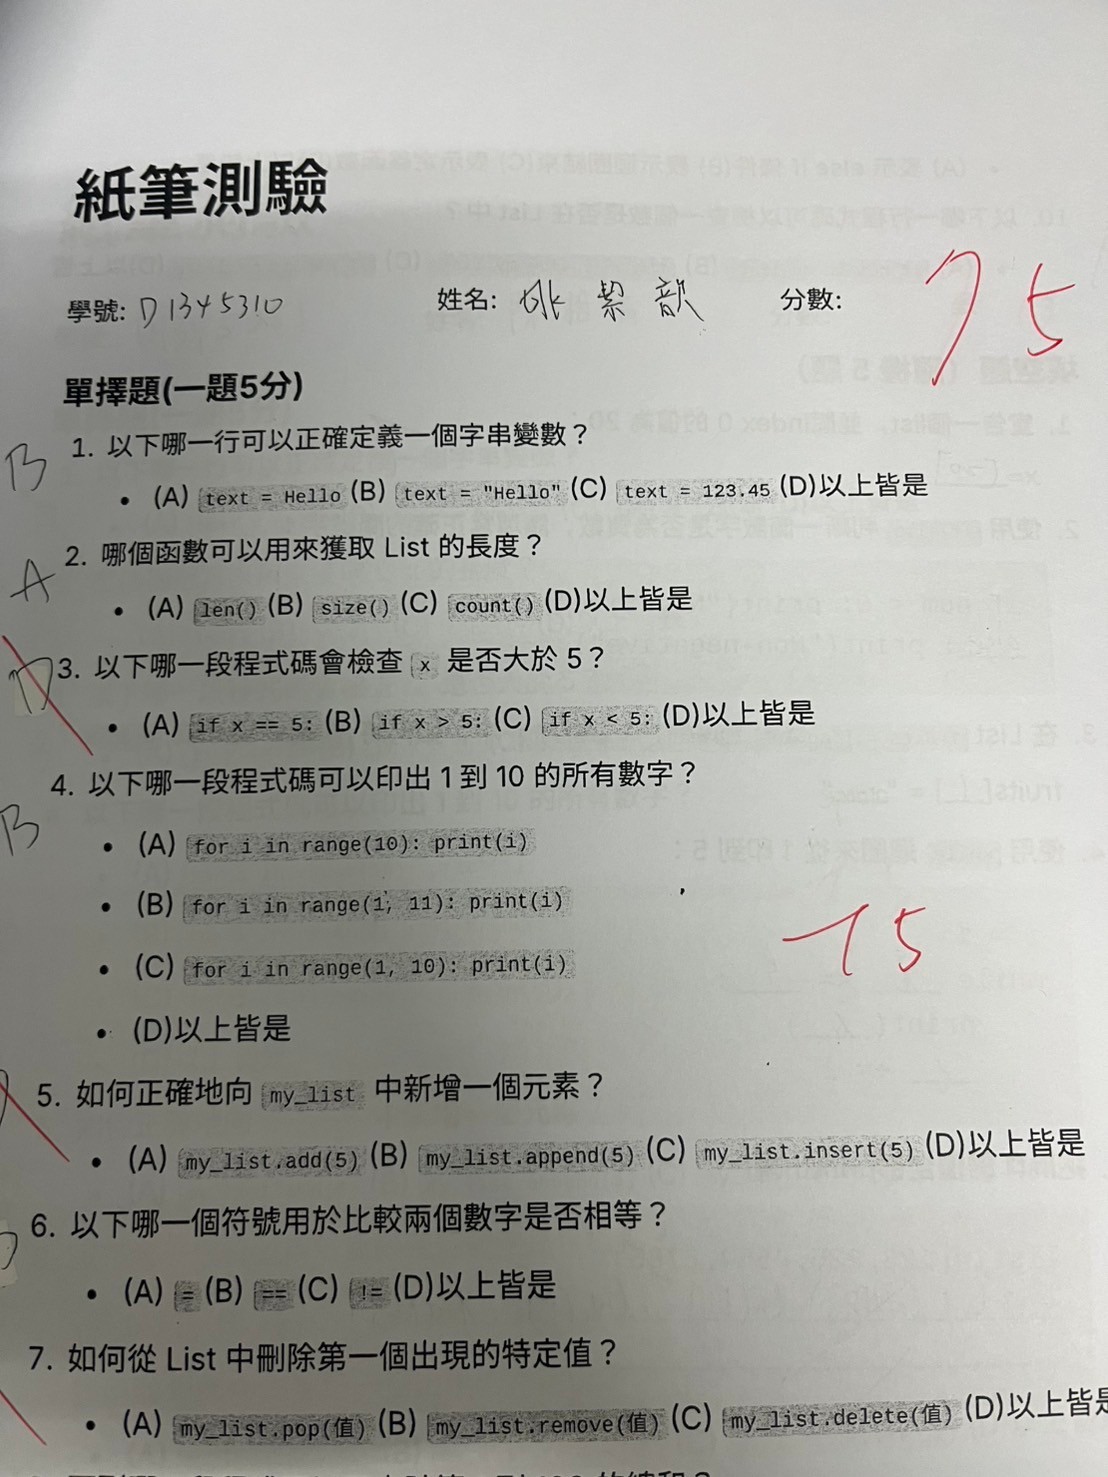 紙筆測驗
學號: D1345310 姓名: 姚絜歆 分數: 75
單擇題(一題5分)
B 1. 以下哪一行可以正確定義一個字串變數？
• (A) text = Hello (B) text = "Hello" (C) text = 123.45 (D)以上皆是
A 2. 哪個函數可以用來獲取 List 的長度？
• (A) len() (B) size() (C) count() (D)以上皆是
D 3. 以下哪一段程式碼會檢查 x 是否大於 5？
• (A) if x == 5: (B) if x > 5: (C) if x < 5: (D)以上皆是
4. 以下哪一段程式碼可以印出 1 到 10 的所有數字？
B
• (A) for i in range(10): print(i)
• (B) for i in range(1, 11): print(i)
-15
• (C) for i in range(1, 10): print(i)
• (D)以上皆是
5. 如何正確地向 my_list 中新增一個元素？
• (A) my_list.add(5) (B) my_list.append(5) (C) my_list.insert(5) (D)以上皆是
6. 以下哪一個符號用於比較兩個數字是否相等？
• (A) = (B) == (C) != (D)以上皆是
7. 如何從 List 中刪除第一個出現的特定值？
• (A) my_list.pop(值) (B) my_list.remove(值) (C) my_list.delete(值) (D)以上皆是